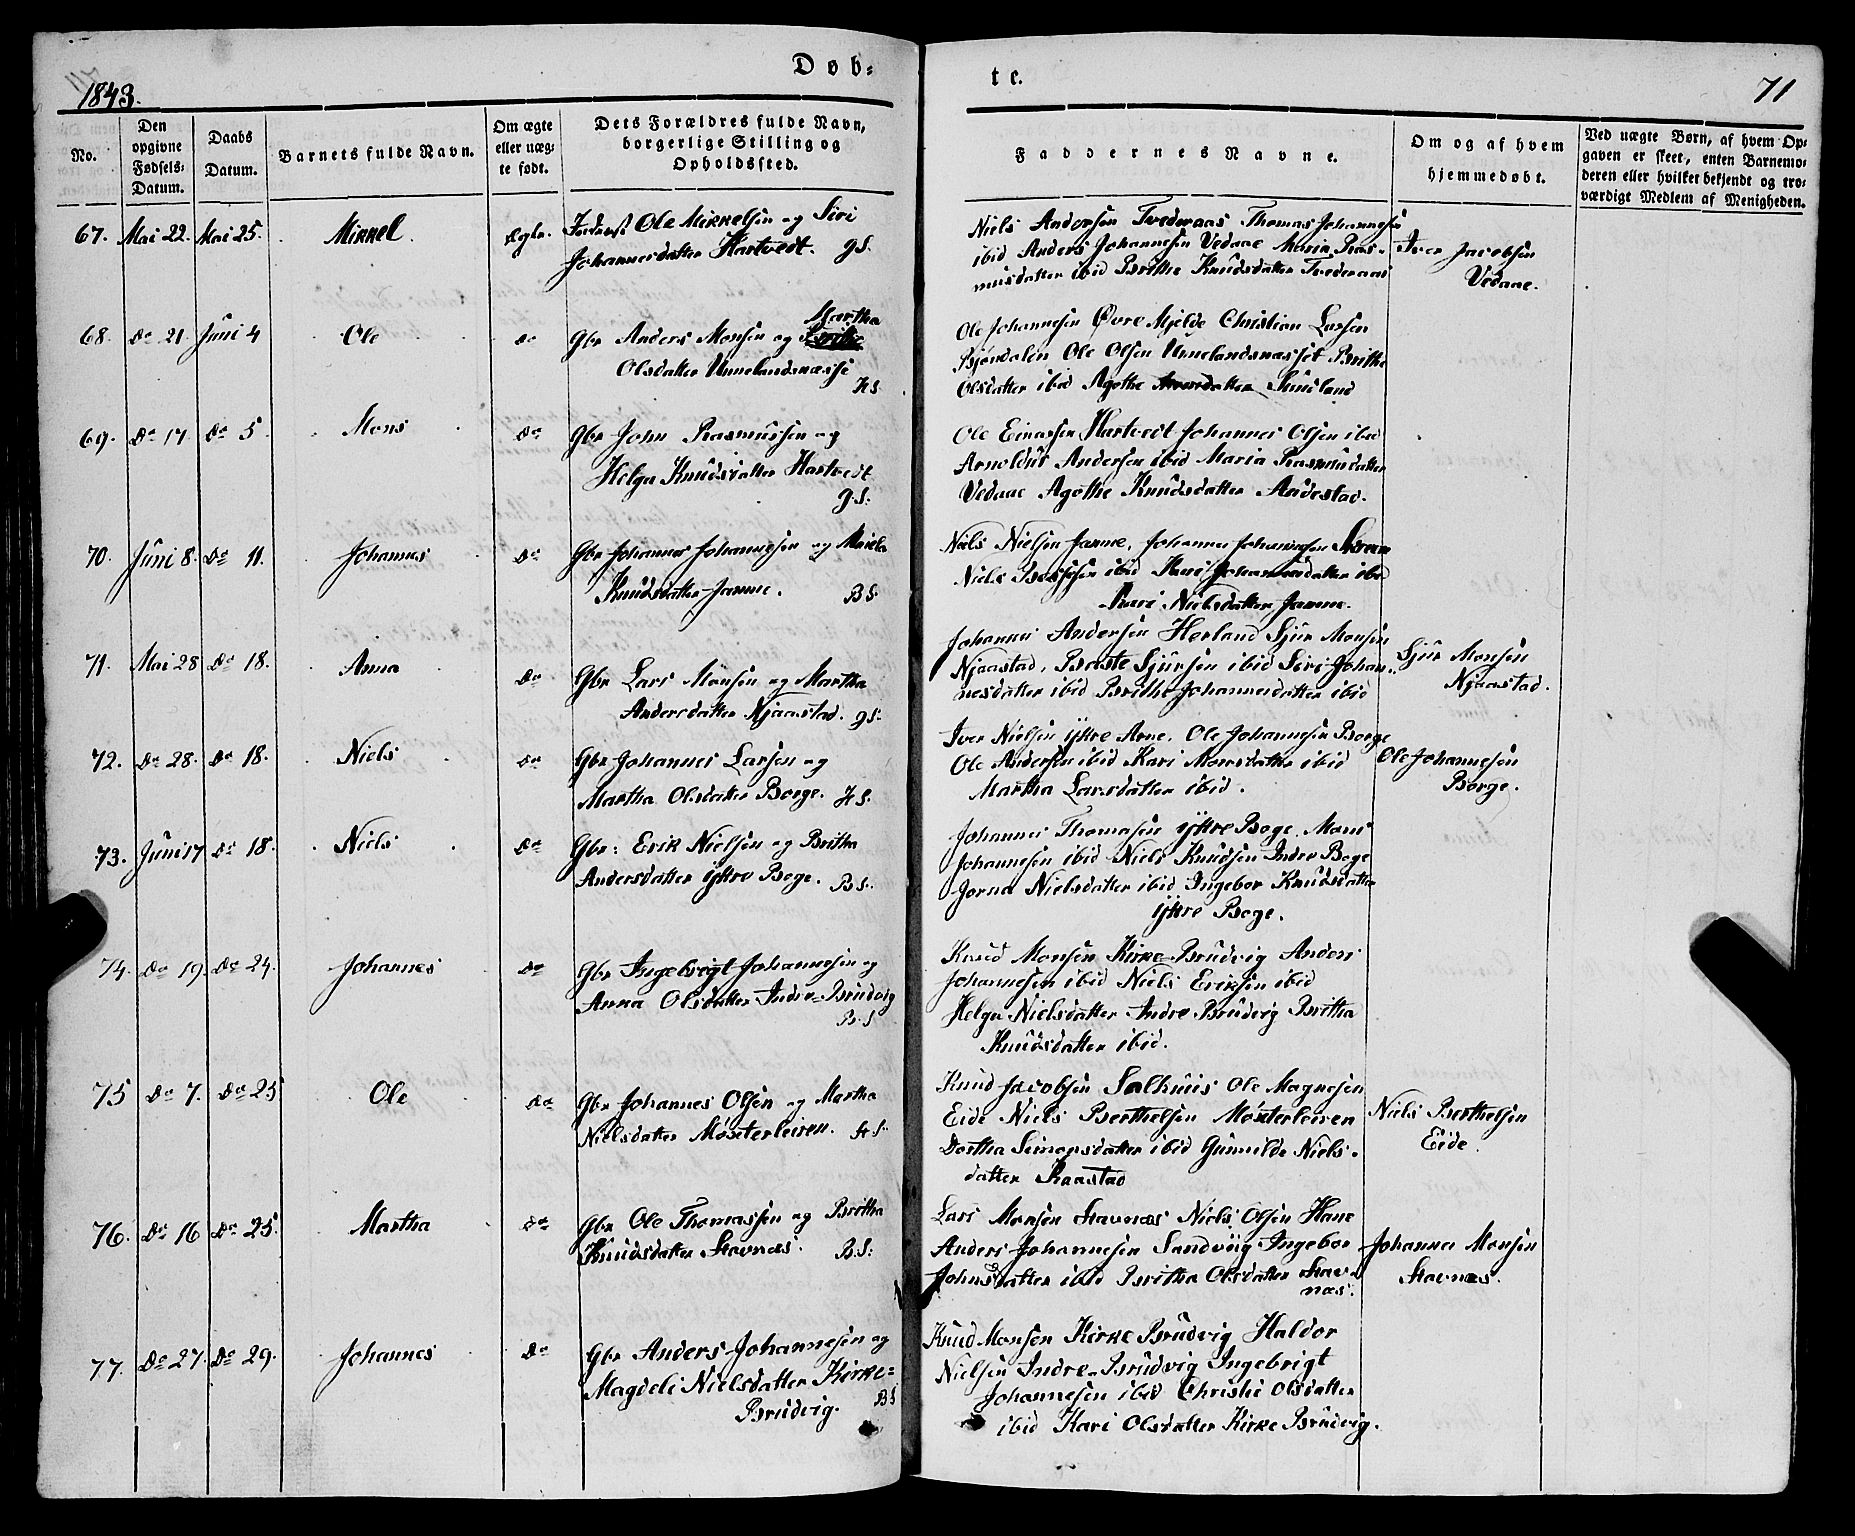 Døb=
te.
1843.
71
No.
Den opgivne Fødsels-Datum.
Daabs Datum.
Barnets fulde Navn.
Om ægte eller uæg-te født.
Dets Forældres fulde Navn, borgerlige Stilling og Opholdssted.
Faddernes Navne.
Om og af hvem hjemmedøbt.
Ved uægte Børn, af hvem Op-gaven er skeet, enten Barnemo-deren eller hvilket bekjendt og tro-værdigt Medlem af Menigheden.
67. Mai 22. Mai 25. Mikkel Ægte. Ole Mikkelsen og Siri
Johannesdatter Hartvedt. GS.
Niels Andersen Tvederaas Thomas Johannesen
ibid Anders Johannesen Vedaae Maria Ras-
musdatter ibid Brithe Knudsdatter Tvederaas
Iver Jacobsen
Vedaae.
68. do 21. Juni 4 Ole do Gbr Anders Monsen og Martha
Olsdatter Unnelandsnæsset HS.
Ole Johannesen Øvre Mjelde Christian Larsen
Bjøndalen Ole Olsen Unnelandsnæsset Brithe
Olsdatter ibid Agathe Sundland
69. do 17 do 5 Mons do Gbr John Rasmussen og
Helga Knudsdatter Hartvedt
GS.
Ole Einarsen Hartvedt Johannes Olsen ibid
Arnoldus Andersen ibid Maria Rasmusdatter
Vedaae Agathe Knudsdatter Andestad.
70. Juni 8. do 11. Johannes do Gbr Johannes Johannesen og
Knudsdatter Jamne. BS.
Niels Nielsen Jamne. Johannes Johannesen
Niels ibid Kari Johannesdatter ibid
Kari Nielsdatter Jamne.
71. Mai 28 do 18. Anna do Gbr Lars Monsen og Martha
Andersdatter Njaastad. GS.
Johannes Andersen Herland Sjur Monsen
Njaastad. Sjursen ibid Siri Johan-
nesdatter ibid Brithe Johannesdatter ibid
Sjur Monsen
Njaastad.
72. do 28. do 18. Niels do Gbr Johannes Larsen og
Martha Olsdatter Borge. HS.
Iver Nielsen Ytre Arne. Ole Johannesen Borge
Ole Andersen ibid Kari Monsdatter ibid
Martha Larsdatter ibid.
Ole Johannesen
Borge.
73. Juni 17 do 18. Niels do Gbr: Erik Nielsen og Britha
Andersdatter Ytre Boge. BS.
Johannes Thomasen Ytre Boge. Mons
Johannesen ibid Niels Knudsen Indre Boge
Jorna Nielsdatter ibid Ingebor Knudsdatter
Ytre Boge.
74. do 19. do 24. Johannes do Gbr Ingebrigt Johannesen og
Anna Olsdatter Indre-Brudvig
B.S
Knud Monsen Kirke-Brudvig Anders
Johannesen ibid Niels Eriksen ibid
Helga Nielsdatter Indre Brudvig Britha
Knudsdatter ibid.
75 do 7. do 25 Ole do Gbr Johannes Olsen og Martha
Nielsdatter Møsterleiren. HS.
Knud Jacobsen Salhuus Ole Magnesen
Eide Niels Berthelsen Møsterleiren
Dortha Simonsdatter ibid Gunnilde Niels-
datter Raastad
Niels Berthelsen
Eide.
76. do 16 do 25. Martha do Gbr Ole Thomassen og Britha
Knudsdatter Stavnæs. BS:
Lars Monsen Stavnæs Niels Olsen Hane
Anders Johannesen Sandviig Ingebor
Johnsdatter ibid Britha Olsdatter Stav-
næs.
Johannes Monsen
Stavnæs.
77. do 27. do 29. Johannes do Gbr Anders Johannesen og
Magdeli Nielsdatter Kirke=
Brudvig. BS
Knud Monsen Kirke Brudvig Haldor
Nielsen Indre-Brudvig Ingebrigt
Johannesen ibid Christi Olsdatter
ibid Kari Olsdatter Kirke Brudvig.